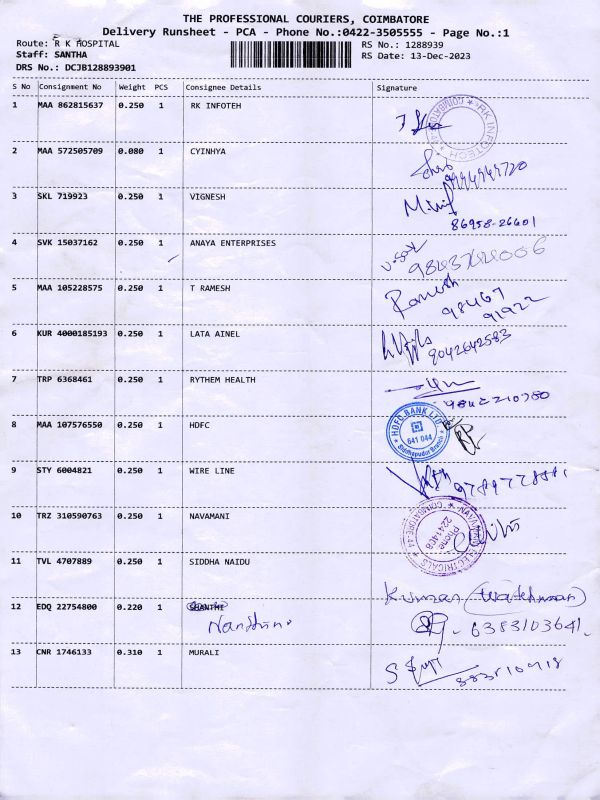 THE PROFESSIONAL COURIERS, COIMBATORE
Delivery Runsheet - PCA - Phone No.:0422-3505555 - Page No.:1
Route: R K HOSPITAL
Staff: SANTHA
DRS No.: DCJB128893901
RS No.: 1288939
RS Date: 13-Dec-2023
S No Consignment No Weight PCS Consignee Details Signature
1 MAA 862815637 0.250 1 RK INFOTEH
RK INFOTECH ★ COIMBATORE ★
2 MAA 572505709 0.080 1 CYINHYA
3 SKL 719923 0.250 1 VIGNESH
86958-26601
4 SVK 15037162 0.250 1 ANAYA ENTERPRISES
5 MAA 105228575 0.250 1 T RAMESH
Ramesh
98467
91922
6 KUR 4000185193 0.250 1 LATA AINEL
9042642583
7 TRP 6368461 0.250 1 RYTHEM HEALTH
8 MAA 107576550 0.250 1 HDFC
HDFC BANK LTD.
641 044
Branch
9 STY 6004821 0.250 1 WIRE LINE
10 TRZ 310590763 0.250 1 NAVAMANI
NAVAMANI ELECTRICALS ★ COIMBATORE-44 ★
Phone
2241408
11 TVL 4707889 0.250 1 SIDDHA NAIDU
Kumar (Watchman)
12 EDQ 22754800 0.220 1
6383103641.
13 CNR 1746133 0.310 1 MURALI